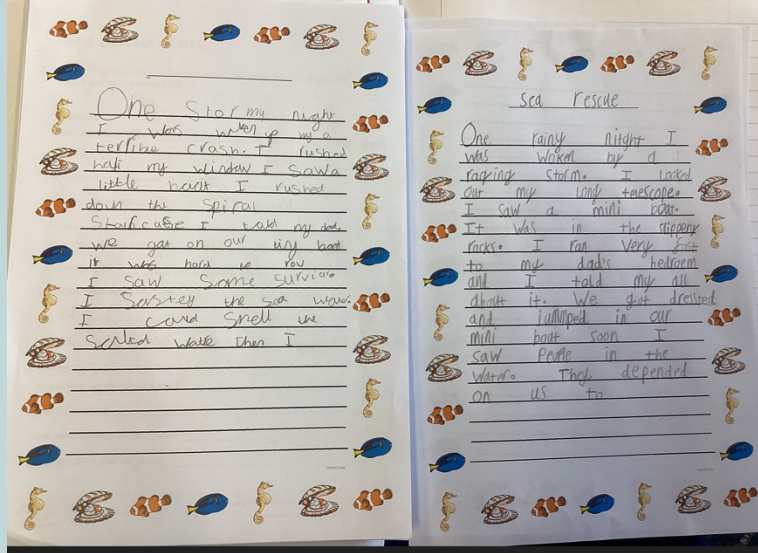 One Stormy night
I was waken up by a
terrible crash. I rushed
my window I Sawa
little I rushed
down the Spiral
Staircase I told my dad
we got on our tiny boat
it was hard to row
I saw Some
I the sea wave.
I could Smell the
then I
sea rescue
One rainy nitght I
was woken by a
raging storm. I looked
out my long telescope.
I saw a mini boat.
It was in the slippery
rocks. I ran very
to my dad's bedroom
and I told my all
about it. We got dressted
and jumped in our
mini boat soon I
saw People in the
water. They depended
on us to